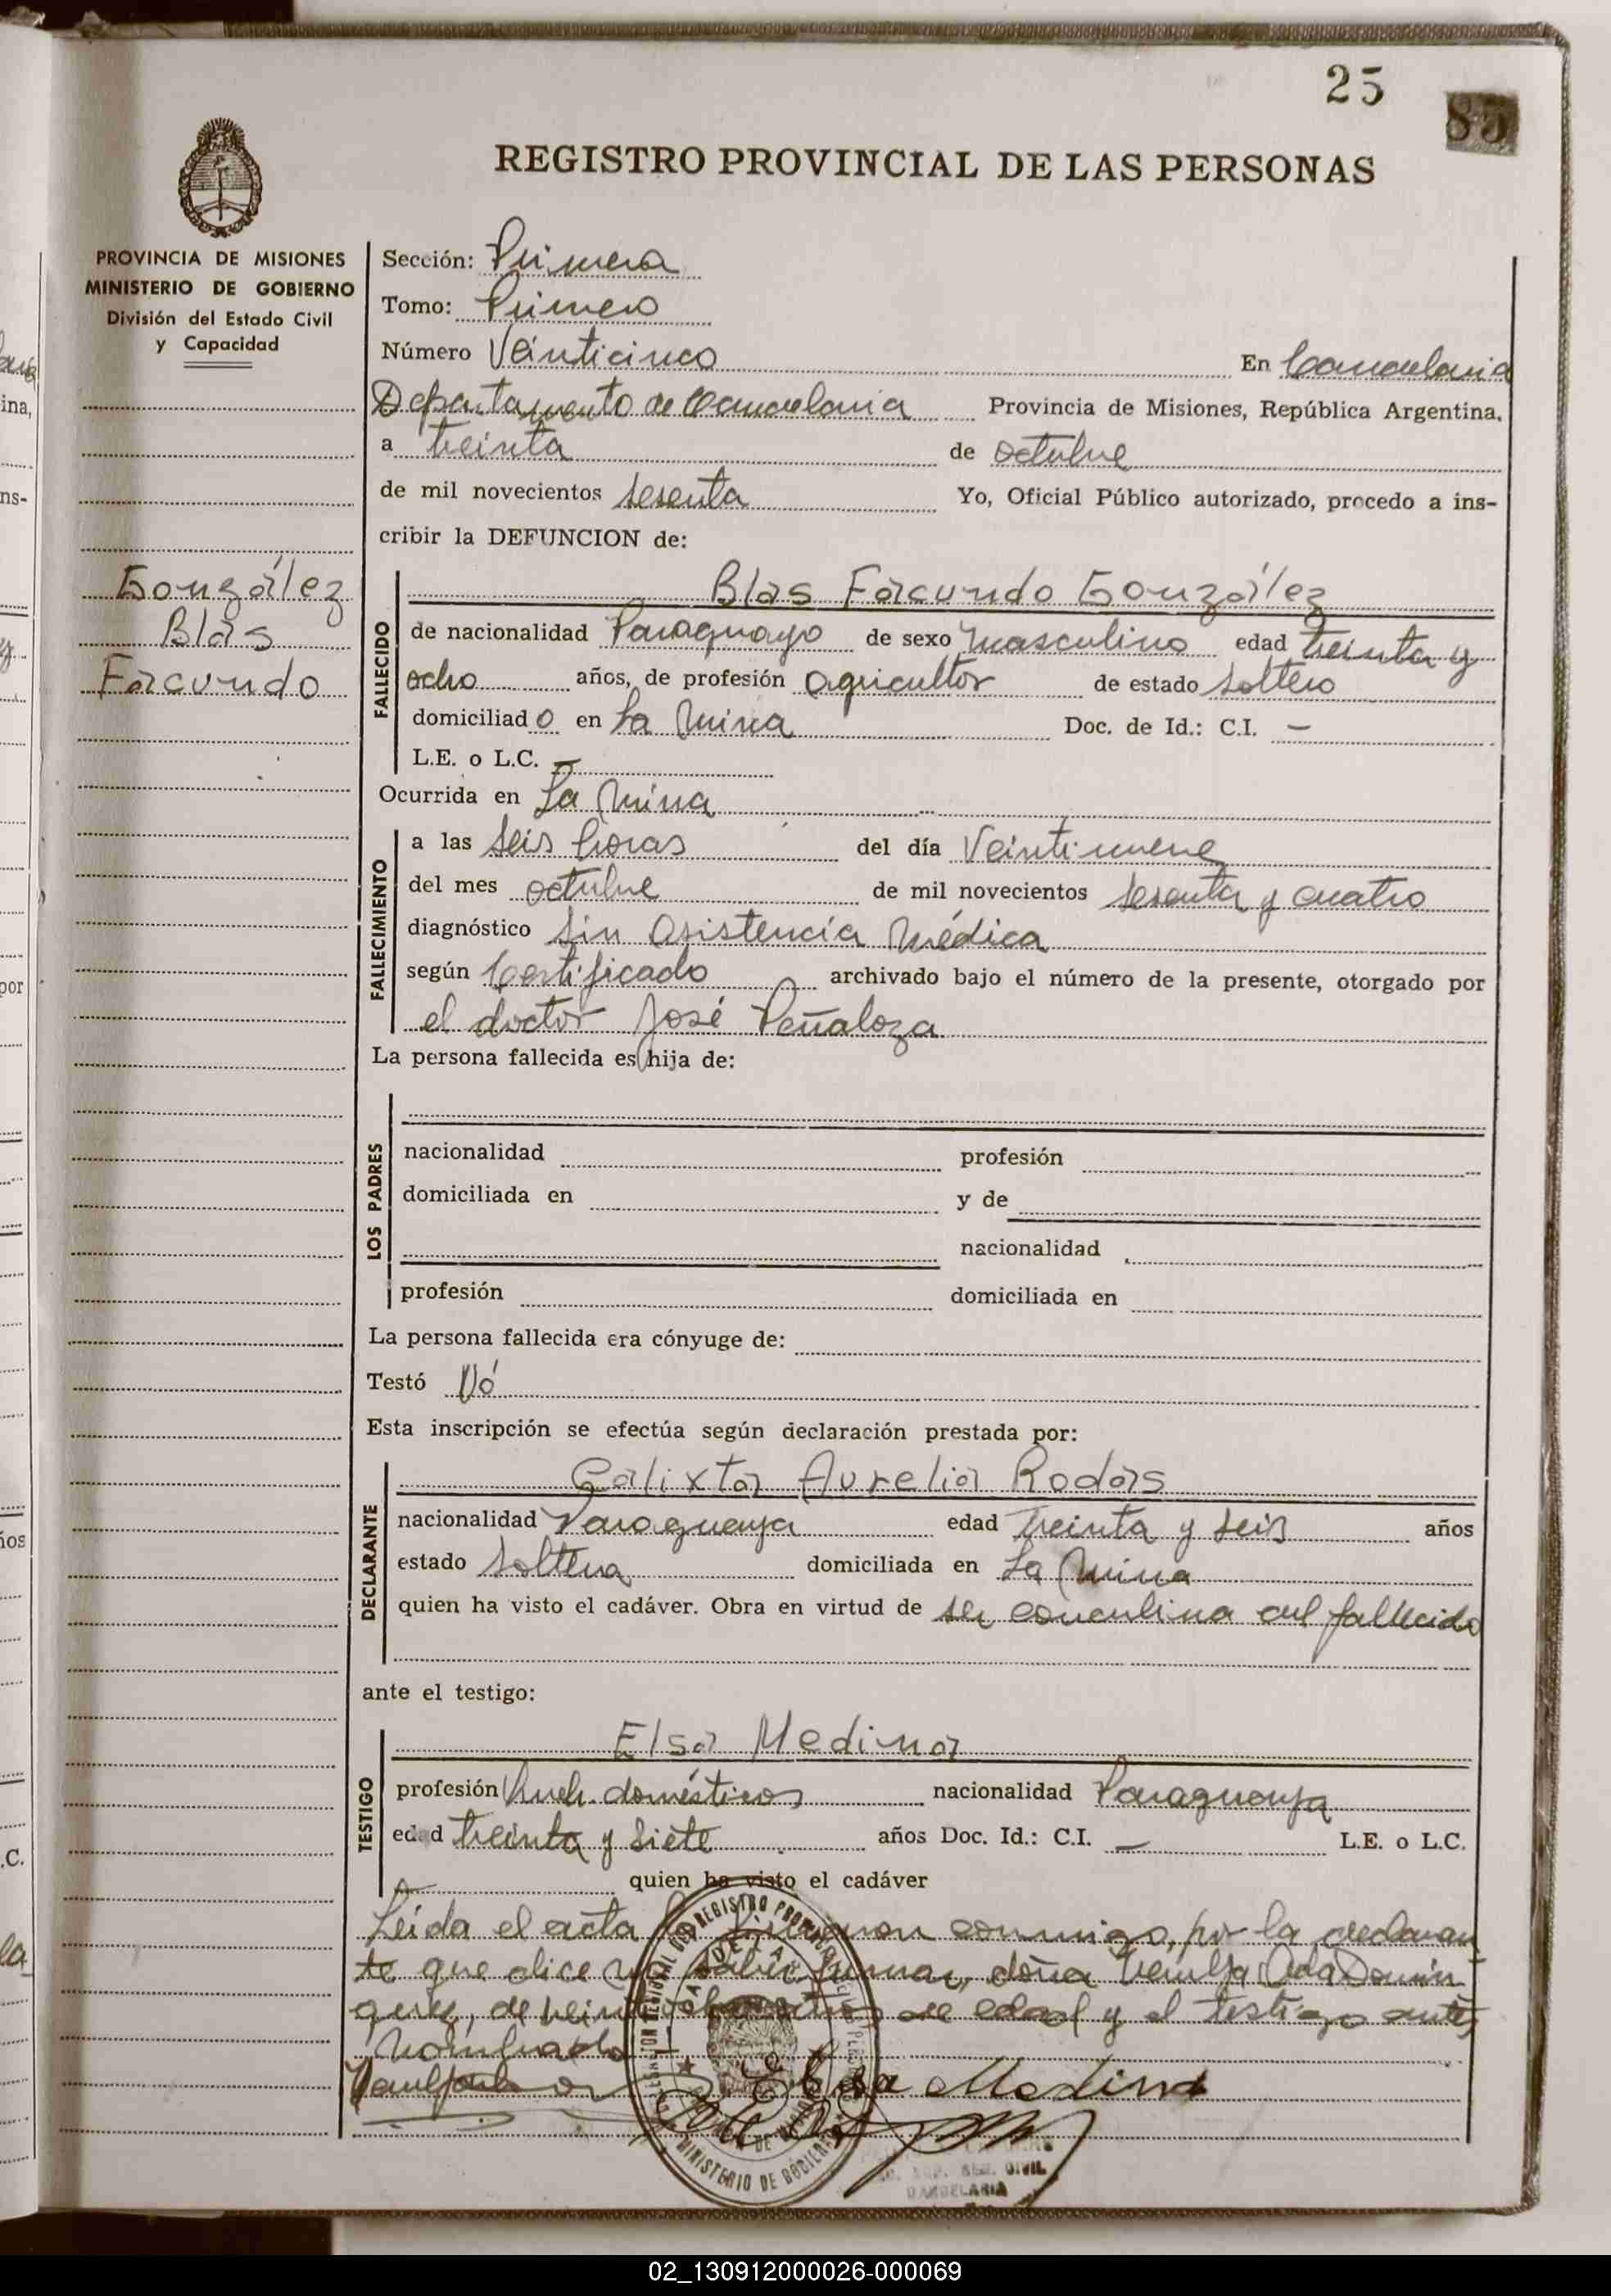 25
85
REGISTRO PROVINCIAL DE LAS PERSONAS
PROVINCIA DE MISIONES
MINISTERIO DE GOBIERNO
División del Estado Civil
y Capacidad
González
Blás
Facundo
Sección: Primera
Tomo: Primero
Número Veinticinco En Candelaria
Departamento de Candelaria Provincia de Misiones, República Argentina,
a treinta de octubre
de mil novecientos sesenta Yo, Oficial Público autorizado, procedo a ins-
cribir la DEFUNCION de:
FALLECIDO
Blas Facundo González
de nacionalidad Paraguayo de sexo masculino edad treinta y
ocho años, de profesión agricultor de estado soltero
domiciliado en La Mina Doc. de Id.: C.I. —
L.E. o L.C. —
Ocurrida en La Mina
FALLECIMIENTO
a las seis horas del día Veintinueve
del mes octubre de mil novecientos sesenta y cuatro
diagnóstico Sin Asistencia Médica
según Certificado archivado bajo el número de la presente, otorgado por
el doctor José Peñaloza
La persona fallecida es hija de:
LOS PADRES
nacionalidad profesión
domiciliada en y de
nacionalidad
profesión domiciliada en
La persona fallecida era cónyuge de:
Testó Nó
Esta inscripción se efectúa según declaración prestada por:
DECLARANTE
Calixta Aurelia Rodas
nacionalidad Paraguaya edad treinta y seis años
estado soltera domiciliada en La Mina
quien ha visto el cadáver. Obra en virtud de ser concubina del fallecido
ante el testigo:
TESTIGO
Elsa Medina
profesión Queh. domésticos nacionalidad Paraguaya
edad treinta y siete años Doc. Id.: C.I. — L.E. o L.C.
— quien ha visto el cadáver
Leída el acta la firman conmigo, por la declaran
te que dice no saber firmar, doña Ada Domín
guez, de años de edad y el testigo antes
nombrado
Elsa Medina
MINISTERIO DE GOBIERNO
CIVIL
CANDELARIA
02_130912000026-000069